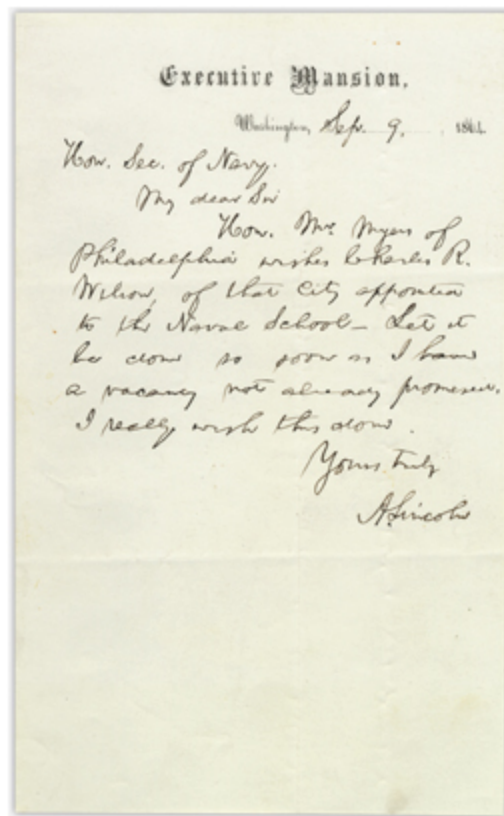 Executive Mansion,
Washington, Sep. 9, 1864.
Hon. Sec. of Navy.
My dear Sir
Hon. Mr. Myers of
Philadelphia wishes Charles R.
Wilson, of that City appointed
to the Naval School— Let it
be done so soon as I have
a vacancy not already promised.
I really wish this done.
Yours truly
A. Lincoln